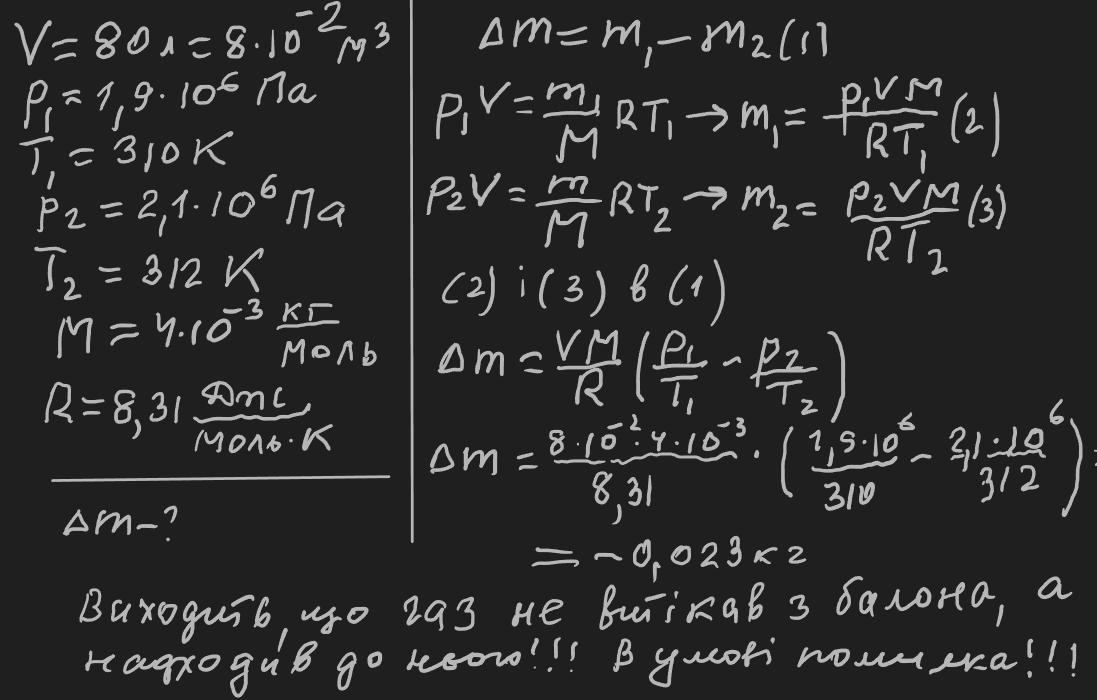 V = 80 л = 8·10⁻² м³
p₁ = 1,9·10⁶ Па
T₁ = 310 К
p₂ = 2,1·10⁶ Па
T₂ = 312 К
M = 4·10⁻³ кг/моль
R = 8,31 Дж/(моль·К)
Δm - ?
Δm = m₁ - m₂ (1)
p₁V = m₁/M RT₁ → m₁ = p₁VM/RT₁ (2)
p₂V = m/M RT₂ → m₂ = p₂VM/RT₂ (3)
(2) і (3) в (1)
Δm = VM/R (p₁/T₁ - p₂/T₂)
Δm = 8·10⁻²·4·10⁻³/8,31 · (1,9·10⁶/310 - 2,1·10⁶/312) =
= -0,023 кг
Виходить, що газ не витікав з балона, а
надходив до нього!!! В умові помилка!!!